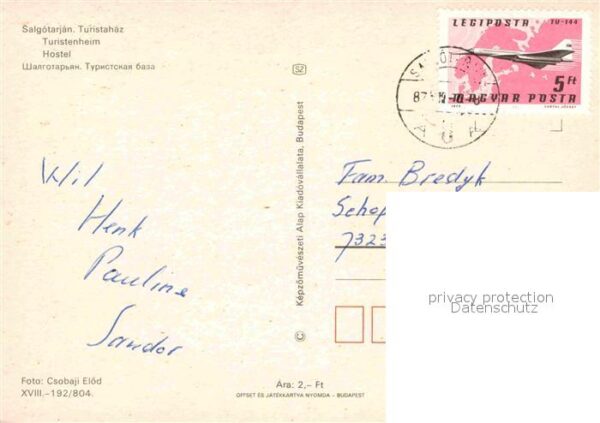 Salgótarján. Turistaház
Turistenheim
Hostel
Шалготарьян. Туристская база
LEGIPOSTA TU-144
5 Ft
MAGYAR POSTA
Képzőművészeti Alap Kiadóvállalata, Budapest
Wil
Henk
Pauline
Sandor
Fam. Bredyk
Schop
7323
privacy protection
Datenschutz
Foto: Csobaji Előd
XVIII.–192/804.
Ára: 2,– Ft
OFFSET ÉS JÁTÉKKÁRTYA NYOMDA – BUDAPEST